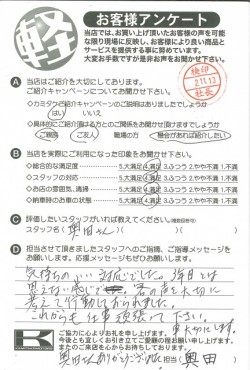 軽
お客様アンケート
当店では、お買い上げ頂いたお客様の声を可能
な限り現場に反映し、お客様により良い商品と
サービスを提供する事に努めています。
大変お手数ですが是非お声をお聞かせ下さい。
検印
2.11.13
社長
A 当店はご紹介を大切にしております。
ご紹介キャンペーンについてお聞かせ下さい。
はい いいえ
ご親戚 ご友人 職場の方 機会があれば紹介したい
B 当店を実際にご利用になった印象をお聞かせ下さい。
◇総合的な満足度 5.大満足 4.満足 3.ふつう 2.やや不満 1.不満
◇スタッフの対応 5.大満足 4.満足 3.ふつう 2.やや不満 1.不満
◇お店の雰囲気、清掃 5.大満足 4.満足 3.ふつう 2.やや不満 1.不満
◇納車時のお車の状態 5.大満足 4.満足 3.ふつう 2.やや不満 1.不満
C 評価したいスタッフがいれば教えてください。
スタッフ名( 奥田さん )
D 担当させて頂きましたスタッフへのご指摘、ご応援メッセージ
をお願いします。
気持ちのいい対応でした。
思えない感じで 客の声を大切に
考えて行動しておられました。
これからも仕事頑張って下さい。
車大切にします。
K
ご協力に心よりお礼を申し上げます。
今後とも宜しくお引き立てご愛顧の程お願い申し上げます。
またのご来店を心からお待ちしております。
奥田さんありがとうございました 担当( 奥田 )